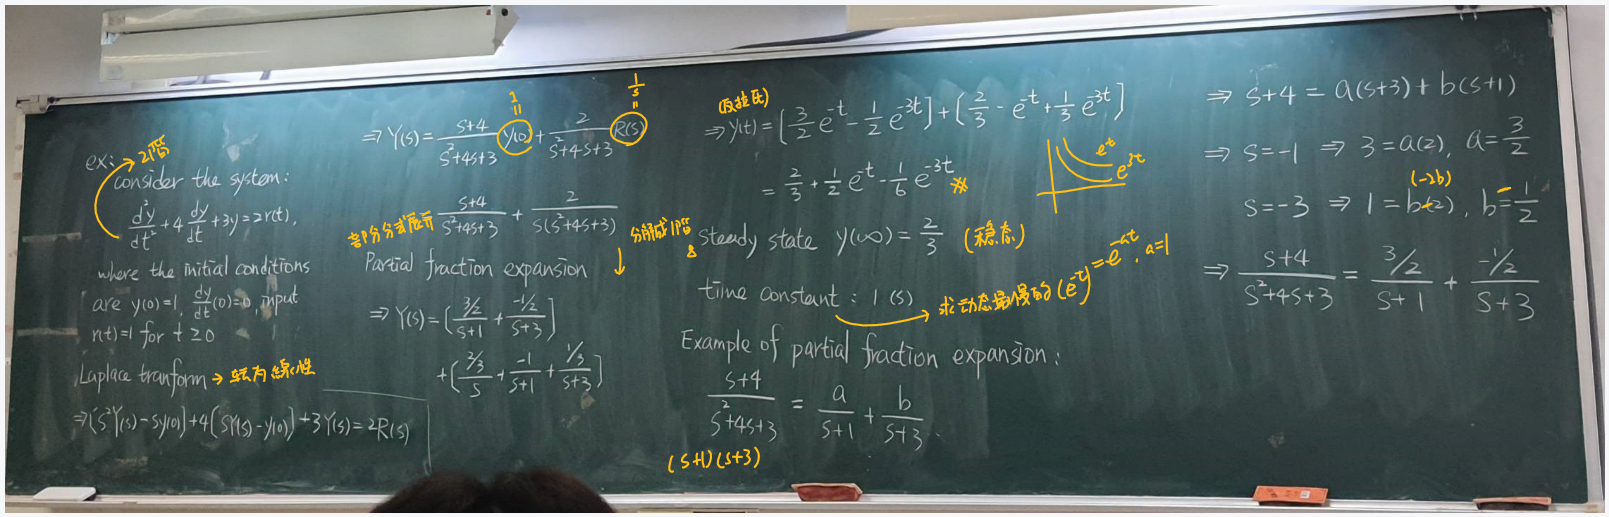 ex: → 2階
consider the system:
d²y/dt² + 4 dy/dt + 3y = 2r(t),
where the initial conditions
are y(0)=1, dy/dt(0)=0, input
r(t)=1 for t ≥ 0
Laplace tranform → 转为線性
⇒ [s²Y(s) - sy(0)] + 4[sY(s) - y(0)] + 3Y(s) = 2R(s)
1 =
1/s =
⇒ Y(s) = (s+4)/(s²+4s+3) y(0) + 2/(s²+4s+3) R(s)
部分分式展开 (s+4)/(s²+4s+3) + 2/(s(s²+4s+3))
Partial fraction expansion ↓ 分解成1階
⇒ Y(s) = [(3/2)/(s+1) + (-1/2)/(s+3)]
+ [(2/3)/s + (-1)/(s+1) + (1/3)/(s+3)]
(反拉氏)
⇒ y(t) = [3/2 e^-t - 1/2 e^-3t] + [2/3 - e^-t + 1/3 e^-3t]
= 2/3 + 1/2 e^-t - 1/6 e^-3t ※
e^t
e^3t
steady state y(∞) = 2/3 (稳态)
time constant : 1 (s) → 求动态最慢的 (e^-t) = e^-at, a=1
Example of partial fraction expansion:
(s+4)/(s²+4s+3) = a/(s+1) + b/(s+3)
(s+1)(s+3)
⇒ s+4 = a(s+3) + b(s+1)
⇒ s=-1 ⇒ 3 = a(2), a = 3/2
(-2b)
s=-3 ⇒ 1 = b(-2), b = -1/2
⇒ (s+4)/(s²+4s+3) = (3/2)/(s+1) + (-1/2)/(s+3)